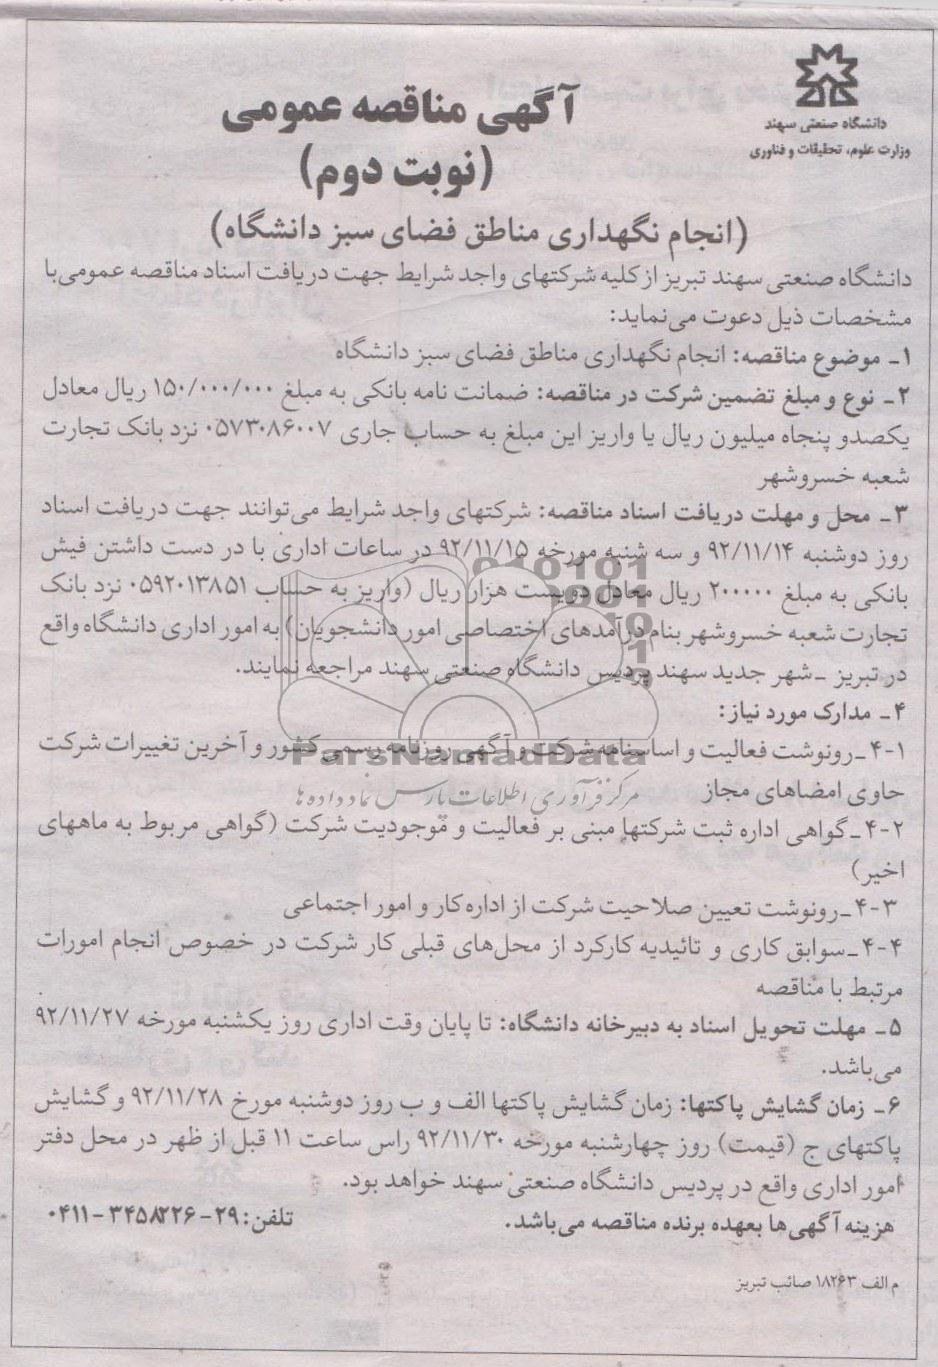 دانشگاه صنعتی سهند
وزارت علوم، تحقیقات و فناوری
آگهی مناقصه عمومی
(نوبت دوم)
(انجام نگهداری مناطق فضای سبز دانشگاه)
دانشگاه صنعتی سهند تبریز از کلیه شرکتهای واجد شرایط جهت دریافت اسناد مناقصه عمومی با
مشخصات ذیل دعوت می‌نماید:
۱ـ موضوع مناقصه: انجام نگهداری مناطق فضای سبز دانشگاه
۲ـ نوع و مبلغ تضمین شرکت در مناقصه: ضمانت نامه بانکی به مبلغ ۱۵۰/۰۰۰/۰۰۰ ریال معادل
یکصدو پنجاه میلیون ریال یا واریز این مبلغ به حساب جاری ۰۵۷۳۰۸۶۰۰۷ نزد بانک تجارت
شعبه خسروشهر
۳ـ محل و مهلت دریافت اسناد مناقصه: شرکتهای واجد شرایط می‌توانند جهت دریافت اسناد
روز دوشنبه ۹۲/۱۱/۱۴ و سه شنبه مورخه ۹۲/۱۱/۱۵ در ساعات اداری با در دست داشتن فیش
بانکی به مبلغ ۲۰۰۰۰۰ ریال معادل دویست هزار ریال (واریز به حساب ۰۵۹۲۰۱۳۸۵۱ نزد بانک
تجارت شعبه خسروشهر بنام درآمدهای اختصاصی امور دانشجویان) به امور اداری دانشگاه واقع
در تبریز ـ شهر جدید سهند پردیس دانشگاه صنعتی سهند مراجعه نمایند.
۴ـ مدارک مورد نیاز:
۴-۱ـ رونوشت فعالیت و اساسنامه شرکت و آگهی روزنامه رسمی کشور و آخرین تغییرات شرکت
حاوی امضاهای مجاز
۴-۲ـ گواهی اداره ثبت شرکتها مبنی بر فعالیت و موجودیت شرکت (گواهی مربوط به ماههای
اخیر)
۴-۳ـ رونوشت تعیین صلاحیت شرکت از اداره کار و امور اجتماعی
۴-۴ـ سوابق کاری و تائیدیه کارکرد از محل‌های قبلی کار شرکت در خصوص انجام امورات
مرتبط با مناقصه
۵ـ مهلت تحویل اسناد به دبیرخانه دانشگاه: تا پایان وقت اداری روز یکشنبه مورخه ۹۲/۱۱/۲۷
می‌باشد.
۶ـ زمان گشایش پاکتها: زمان گشایش پاکتها الف و ب روز دوشنبه مورخ ۹۲/۱۱/۲۸ و گشایش
پاکتهای ج (قیمت) روز چهارشنبه مورخه ۹۲/۱۱/۳۰ راس ساعت ۱۱ قبل از ظهر در محل دفتر
امور اداری واقع در پردیس دانشگاه صنعتی سهند خواهد بود.
هزینه آگهی‌ها بعهده برنده مناقصه می‌باشد. تلفن: ۲۹-۳۴۵۸۲۲۶-۰۴۱۱
م الف ۱۸۲۶۳ صائب تبریز
ParsNamadData
مرکز فرآوری اطلاعات پارس نماد داده ها